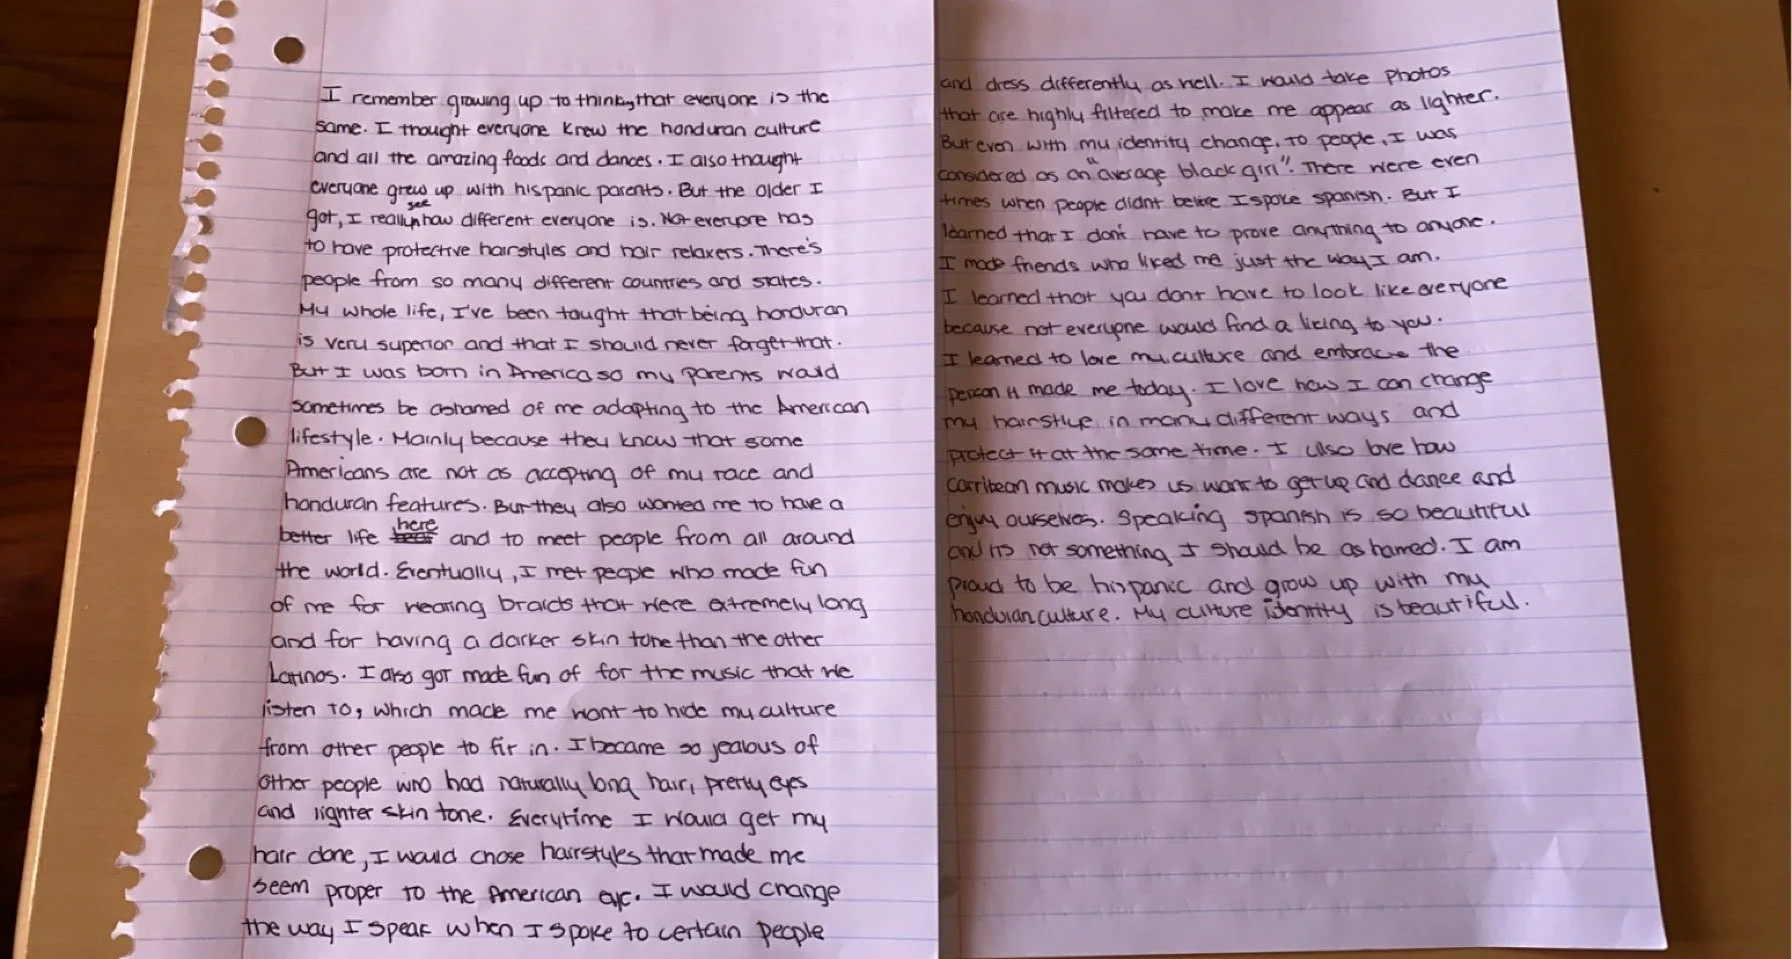 I remember growing up to think, that everyone is the
same. I thought everyone knew the honduran culture
and all the amazing foods and dances. I also thought
everyone grew up with hispanic parents. But the older I
got, I really see how different everyone is. Not everyone has
to have protective hairstyles and hair relaxers. There's
people from so many different countries and states.
My whole life, I've been taught that being honduran
is very superior and that I should never forget that.
But I was born in America so my parents would
sometimes be ashamed of me adapting to the American
lifestyle. Mainly because they know that some
Americans are not as accepting of my race and
honduran features. But they also wanted me to have a
better life here and to meet people from all around
the world. Eventually, I met people who made fun
of me for wearing braids that were extremely long
and for having a darker skin tone than the other
Latinos. I also got made fun of for the music that we
listen to, which made me want to hide my culture
from other people to fit in. I became so jealous of
other people who had naturally long hair, pretty eyes
and lighter skin tone. Everytime I would get my
hair done, I would chose hairstyles that made me
seem proper to the American eye. I would change
the way I speak when I spoke to certain people
and dress differently as well. I would take photos
that are highly filtered to make me appear as lighter.
But even with my identity change, to people, I was
considered as an "average black girl". There were even
times when people didnt belive I spoke spanish. But I
learned that I don't have to prove anything to anyone.
I made friends who liked me just the way I am.
I learned that you dont have to look like everyone
because not everyone would find a liking to you.
I learned to love my culture and embrace the
person it made me today. I love how I can change
my hairstlye in many different ways and
protect it at the same time. I also love how
carribean music makes us want to get up and dance and
enjoy ourselves. Speaking spanish is so beautiful
and its not something I should be ashamed. I am
proud to be hispanic and grow up with my
honduran culture. My culture identity is beautiful.